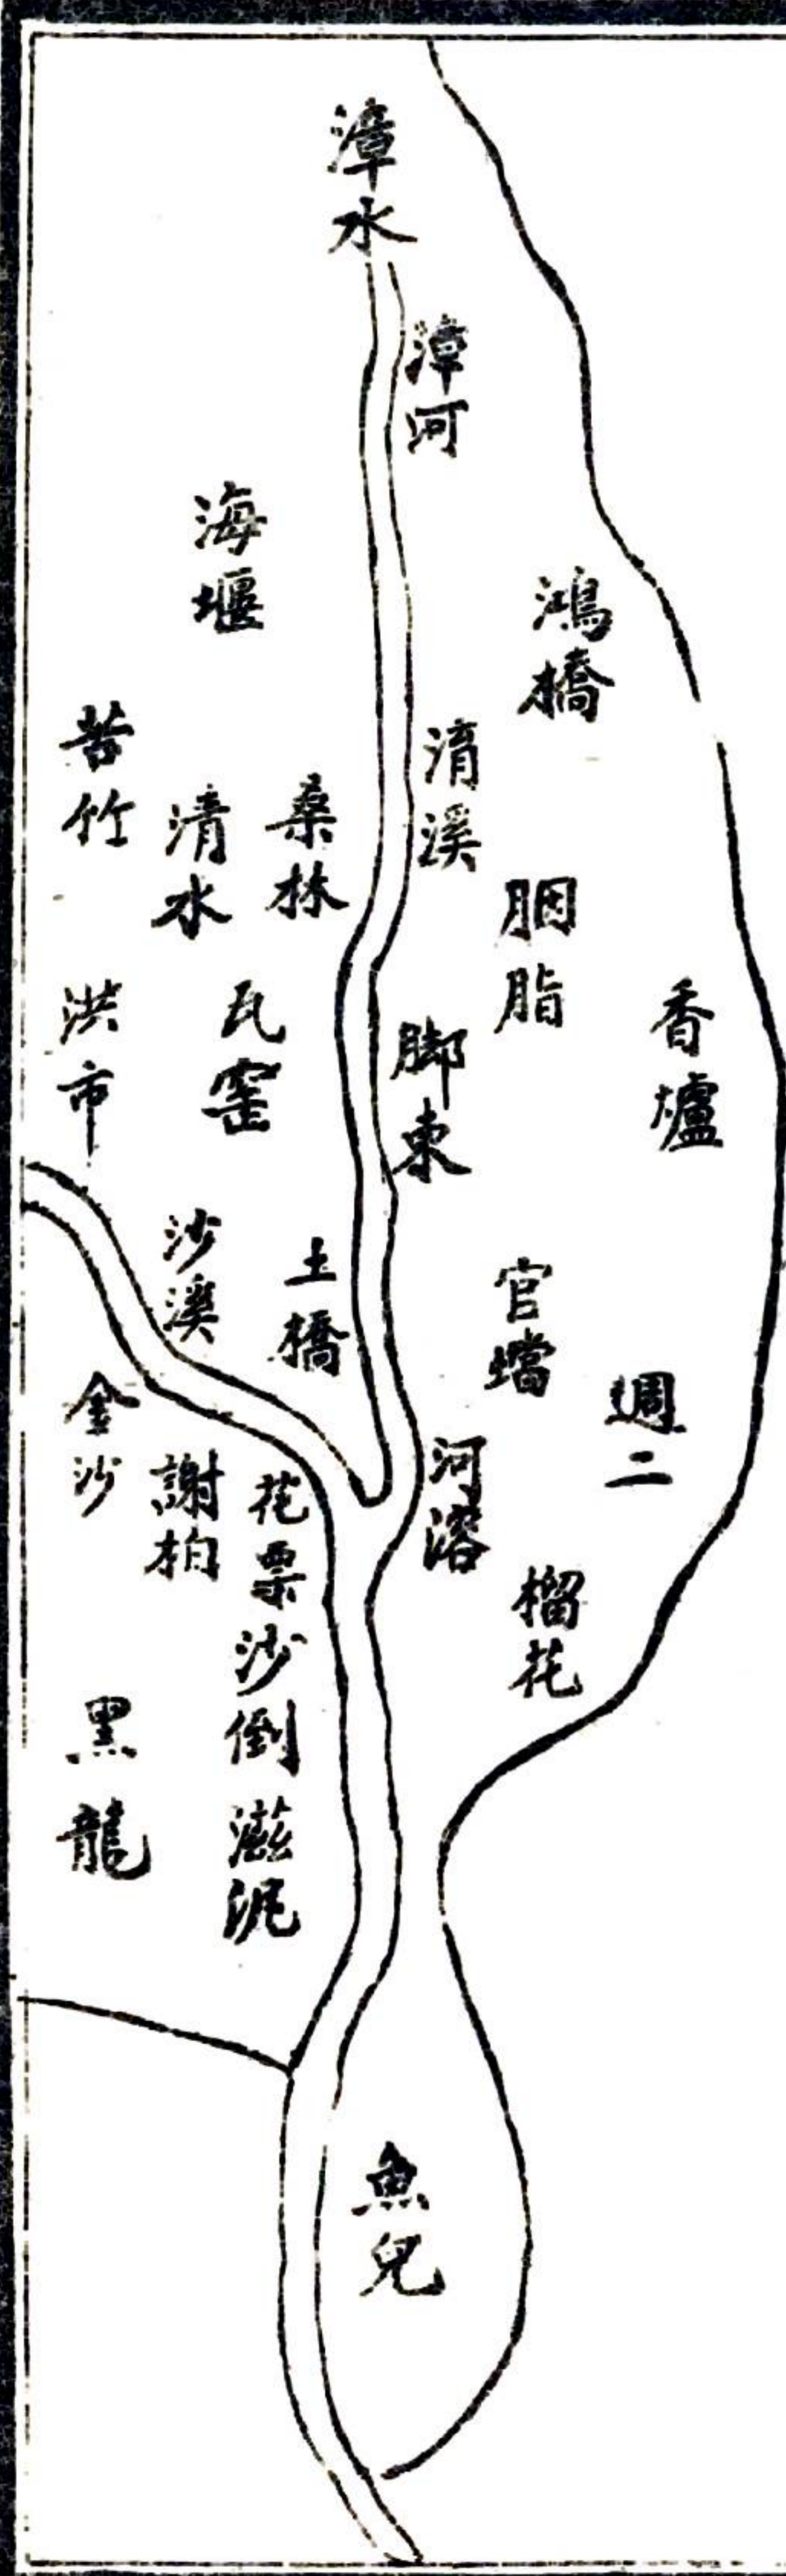 漳水
漳河
海堰
鴻橋
苦竹
清水
桑林
淯溪
胭脂
洪市
瓦窑
脚東
香爐
沙溪
土橋
官壋
週二
金沙
謝柏
花栗
河溶
沙倒
榴花
黑龍
滋泥
魚兒